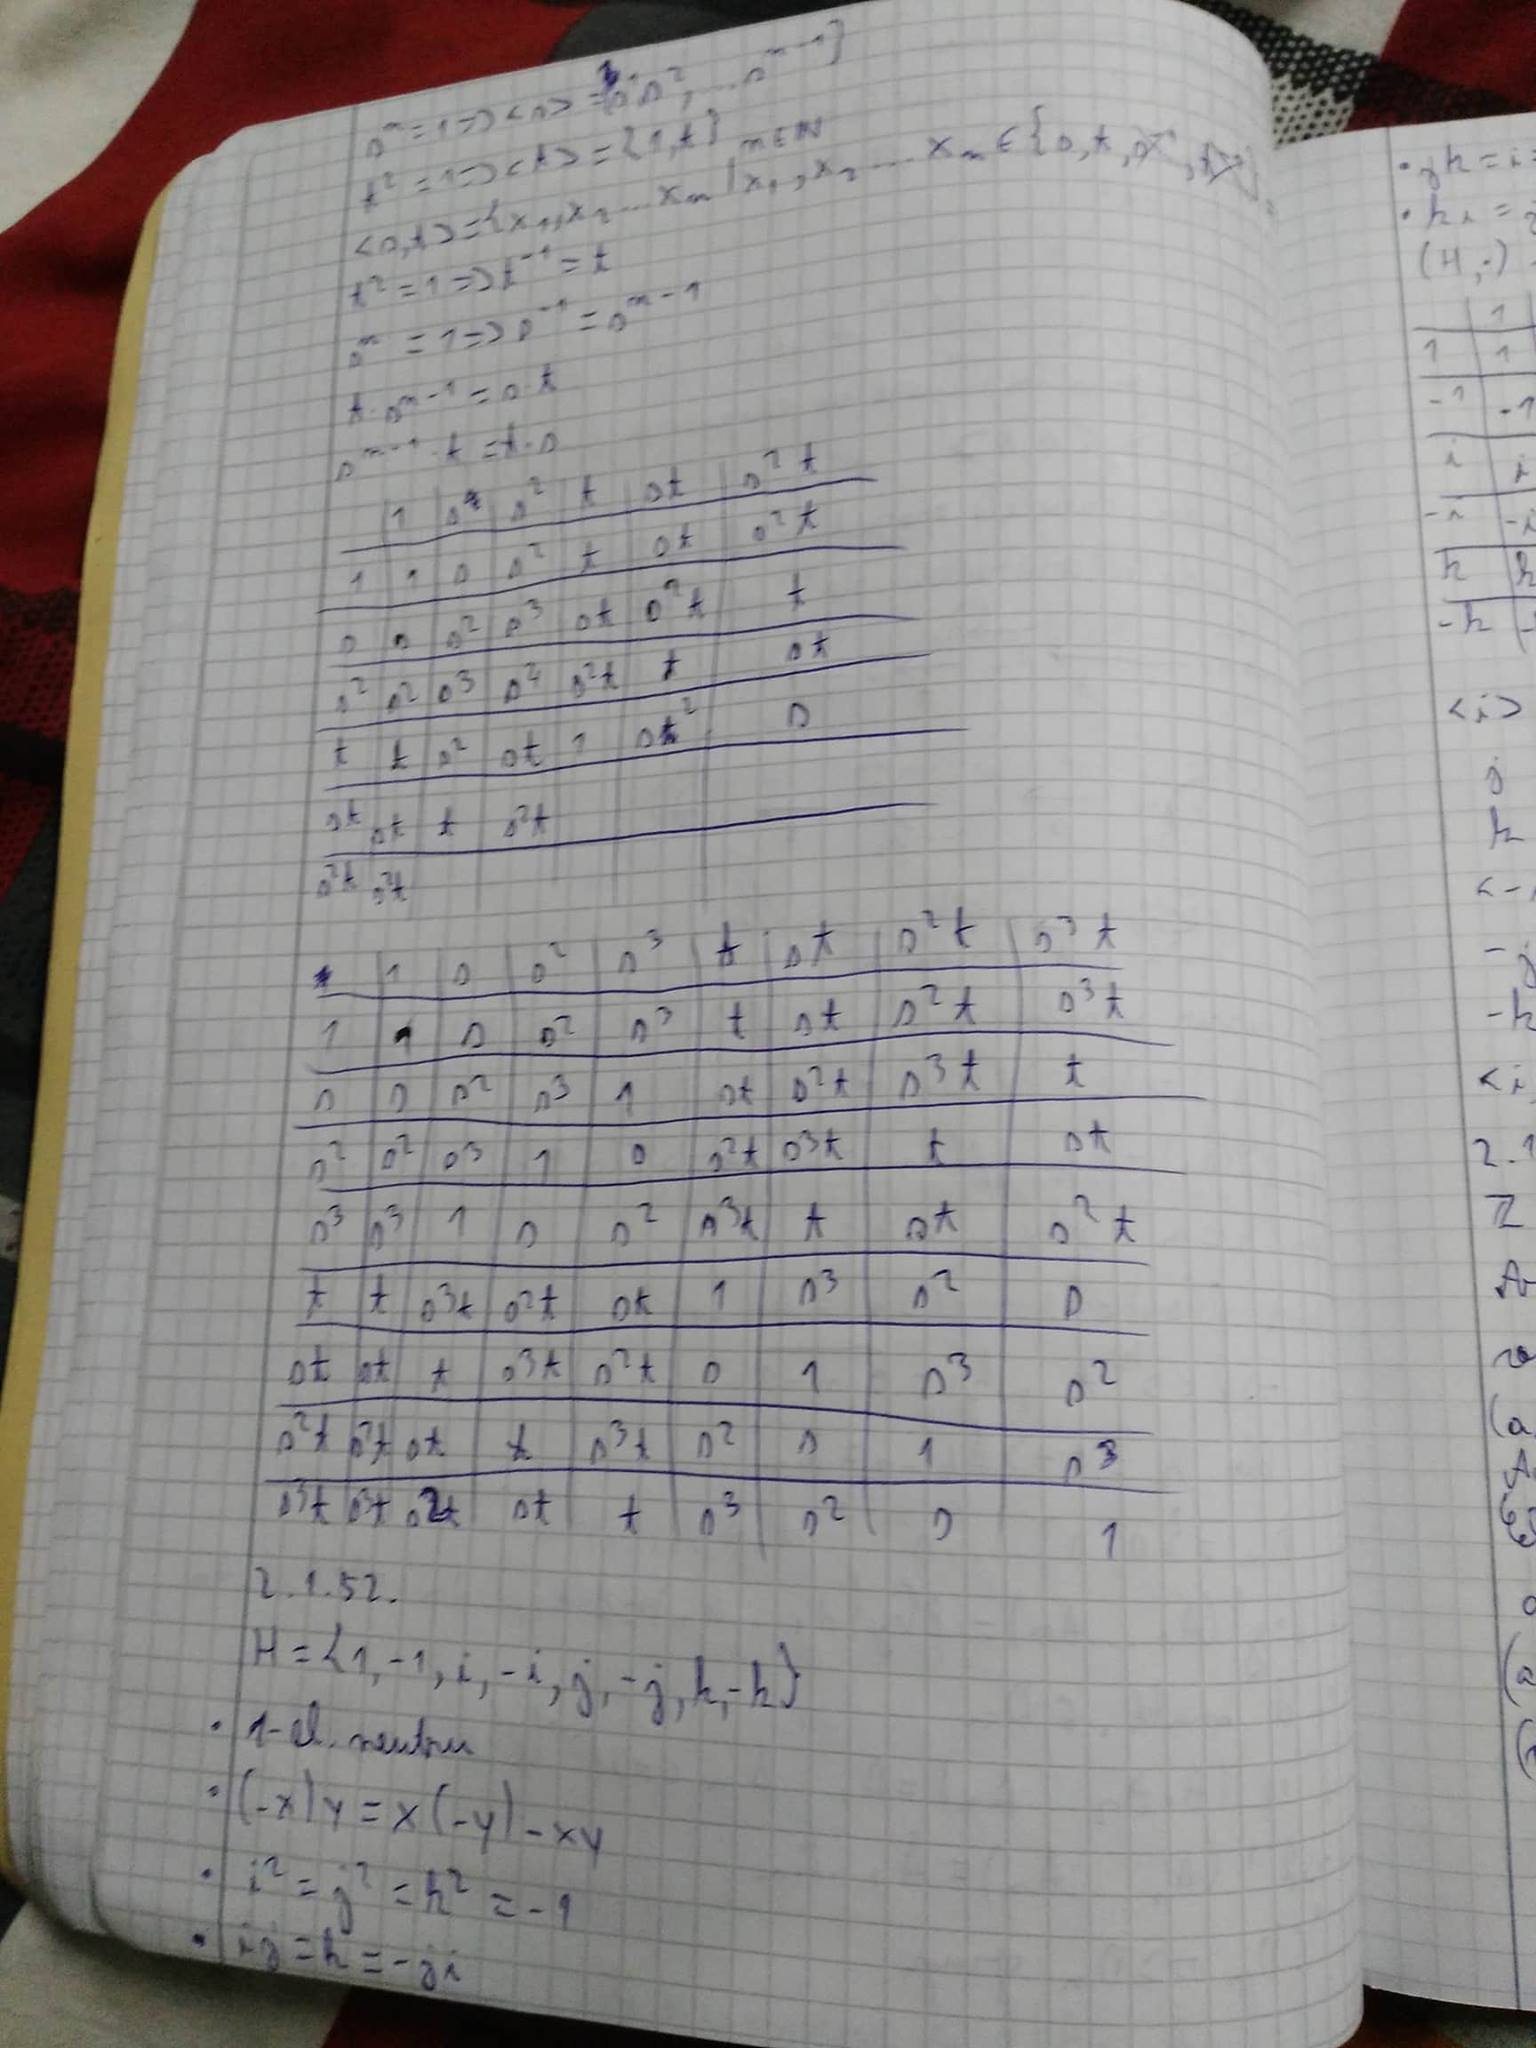 s^n = 1 => <s> = {1, s, s^2, ... s^{n-1}}
t^2 = 1 => <t> = {1, t}
<s,t> = {x_1, x_2 ... x_n | x_1, x_2 ... x_n ∈ {s, t, n ∈ N
t^2 = 1 => t^{-1} = t
s^n = 1 => s^{-1} = s^{n-1}
t · s^{n-1} = s · t
s^{n-1} · t = t · s
1 | s | s^2 | t | st | s^2 t
1 | 1 | s | s^2 | t | st | s^2 t
s | s | s^2 | s^3 | st | s^2 t | t
s^2 | s^2 | s^3 | s^4 | s^2 t | t | st
t | t | s^2 | st | 1 | st^2 | s
st | st | t | s^2 t
s^2 t | s^2 t
1 | s | s^2 | s^3 | t | st | s^2 t | s^3 t
1 | 1 | s | s^2 | s^3 | t | st | s^2 t | s^3 t
s | s | s^2 | s^3 | 1 | st | s^2 t | s^3 t | t
s^2 | s^2 | s^3 | 1 | s | s^2 t | s^3 t | t | st
s^3 | s^3 | 1 | s | s^2 | s^3 t | t | st | s^2 t
t | t | s^3 t | s^2 t | st | 1 | s^3 | s^2 | s
st | st | t | s^3 t | s^2 t | s | 1 | s^3 | s^2
s^2 t | s^2 t | st | t | s^3 t | s^2 | s | 1 | s^3
s^3 t | s^3 t | s^2 t | st | t | s^3 | s^2 | s | 1
2.1.52.
H = {1, -1, i, -i, j, -j, k, -k}
• 1 - el. neutru
• (-x)y = x(-y) - xy
• i^2 = j^2 = k^2 = -1
• ij = k = -ji
• jk = i =
• ki =
(H, ·)
1
1 | 1
-1 | -1
i | i
-i | -i
k | k
-k
<i>
j
k
-k
<i,
Z
(a
(a